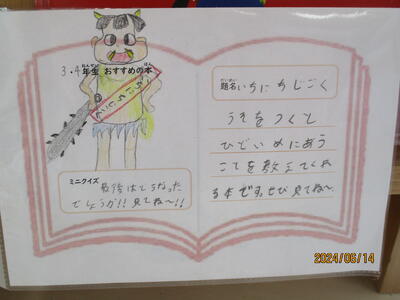 3・4年生 おすすめの本
いちにちじごく
ミニクイズ
最後はどうなった
でしょうか!! 見てね〜!!
題名 いちにちじごく
うそをつくと
ひどいめにあう
ことを教えてくれ
る本です。ぜひ見てね〜
2024/06/14